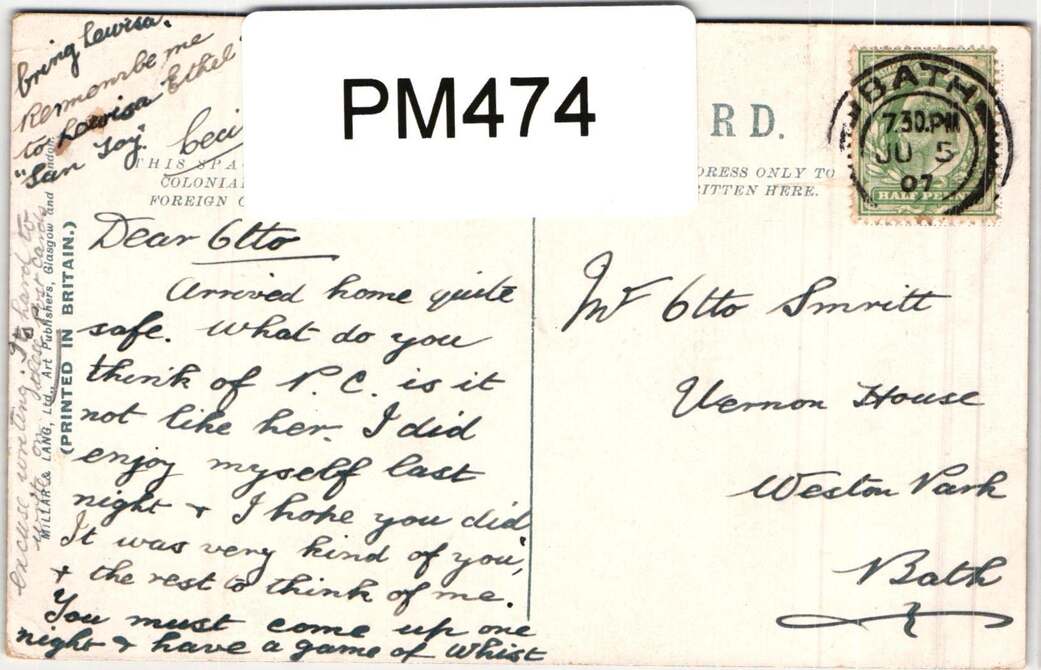 bring Lewisa.
Rememnbe me
to Lewisa Ethel
"San Toy".
PM474
RD.
BATH
7.30.PM
JU 5
07
HALF PE
THIS SPA
COLONIAL
FOREIGN
DRESS ONLY TO
RITTEN HERE.
Dear Otto
Arrived home quite
safe. What do you
think of P.C. is it
not like her. I did
enjoy myself last
night & I hope you did
It was very kind of you,
& the rest to think of me.
You must come up one
night & have a game of Whist
Mr Otto Smritt
Vernon House
Weston Park
Bath
excuse writing. Its hard to
write Post cards
MILLAR & LANG, Ltd., Art Publishers, Glasgow and London.
(PRINTED IN BRITAIN.)